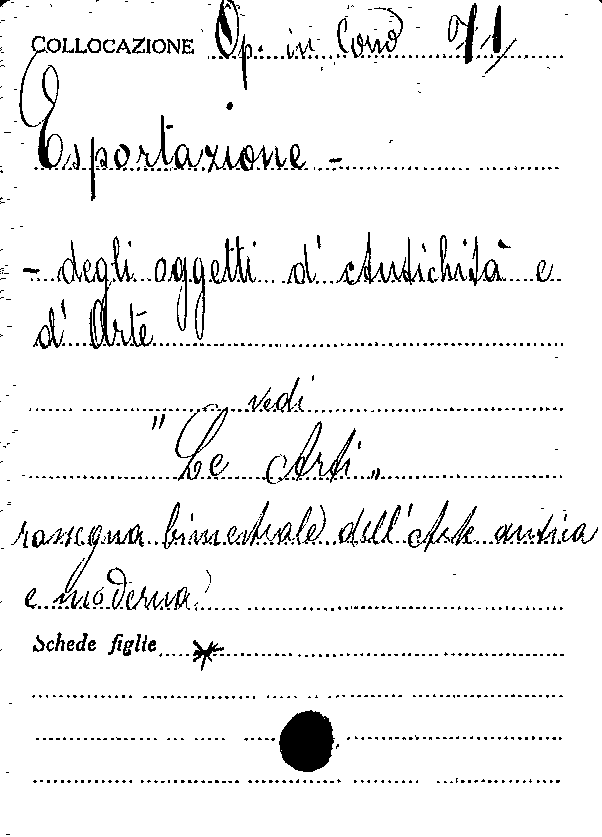 COLLOCAZIONE Op. in Cons
Esportazione -
- degli oggetti d'Antichità e
d'Arte
vedi
"Le Arti"
rassegna bimestrale dell'Arte antica
e moderna.
Schede figlie *